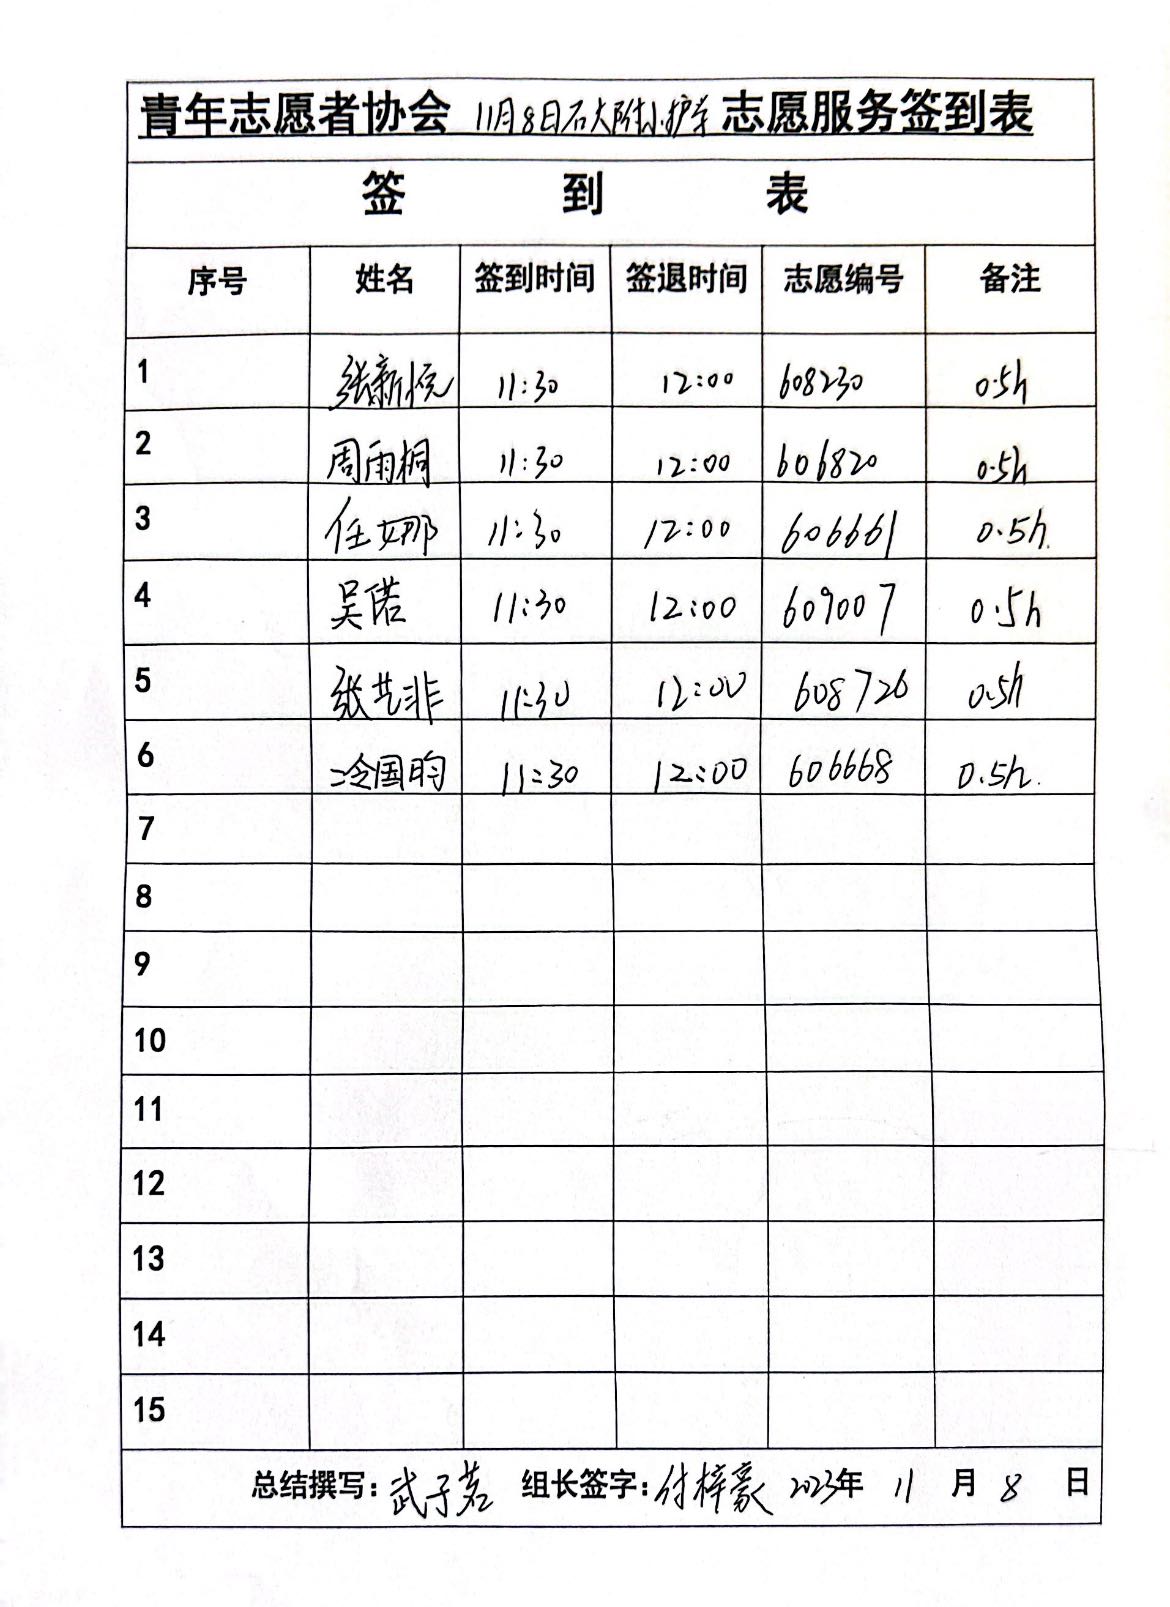 青年志愿者协会 11月8日石大附小护学 志愿服务签到表
签 到 表
序号 姓名 签到时间 签退时间 志愿编号 备注
1 张新悦 11:30 12:00 608230 0.5h
2 周雨桐 11:30 12:00 606820 0.5h
3 任娜 11:30 12:00 606661 0.5h.
4 吴偌 11:30 12:00 609007 0.5h
5 张艺非 11:30 12:00 608726 0.5h
6 冷国昀 11:30 12:00 606668 0.5h.
7
8
9
10
11
12
13
14
15
总结撰写: 武子茗 组长签字: 付梓豪 2023年 11 月 8 日